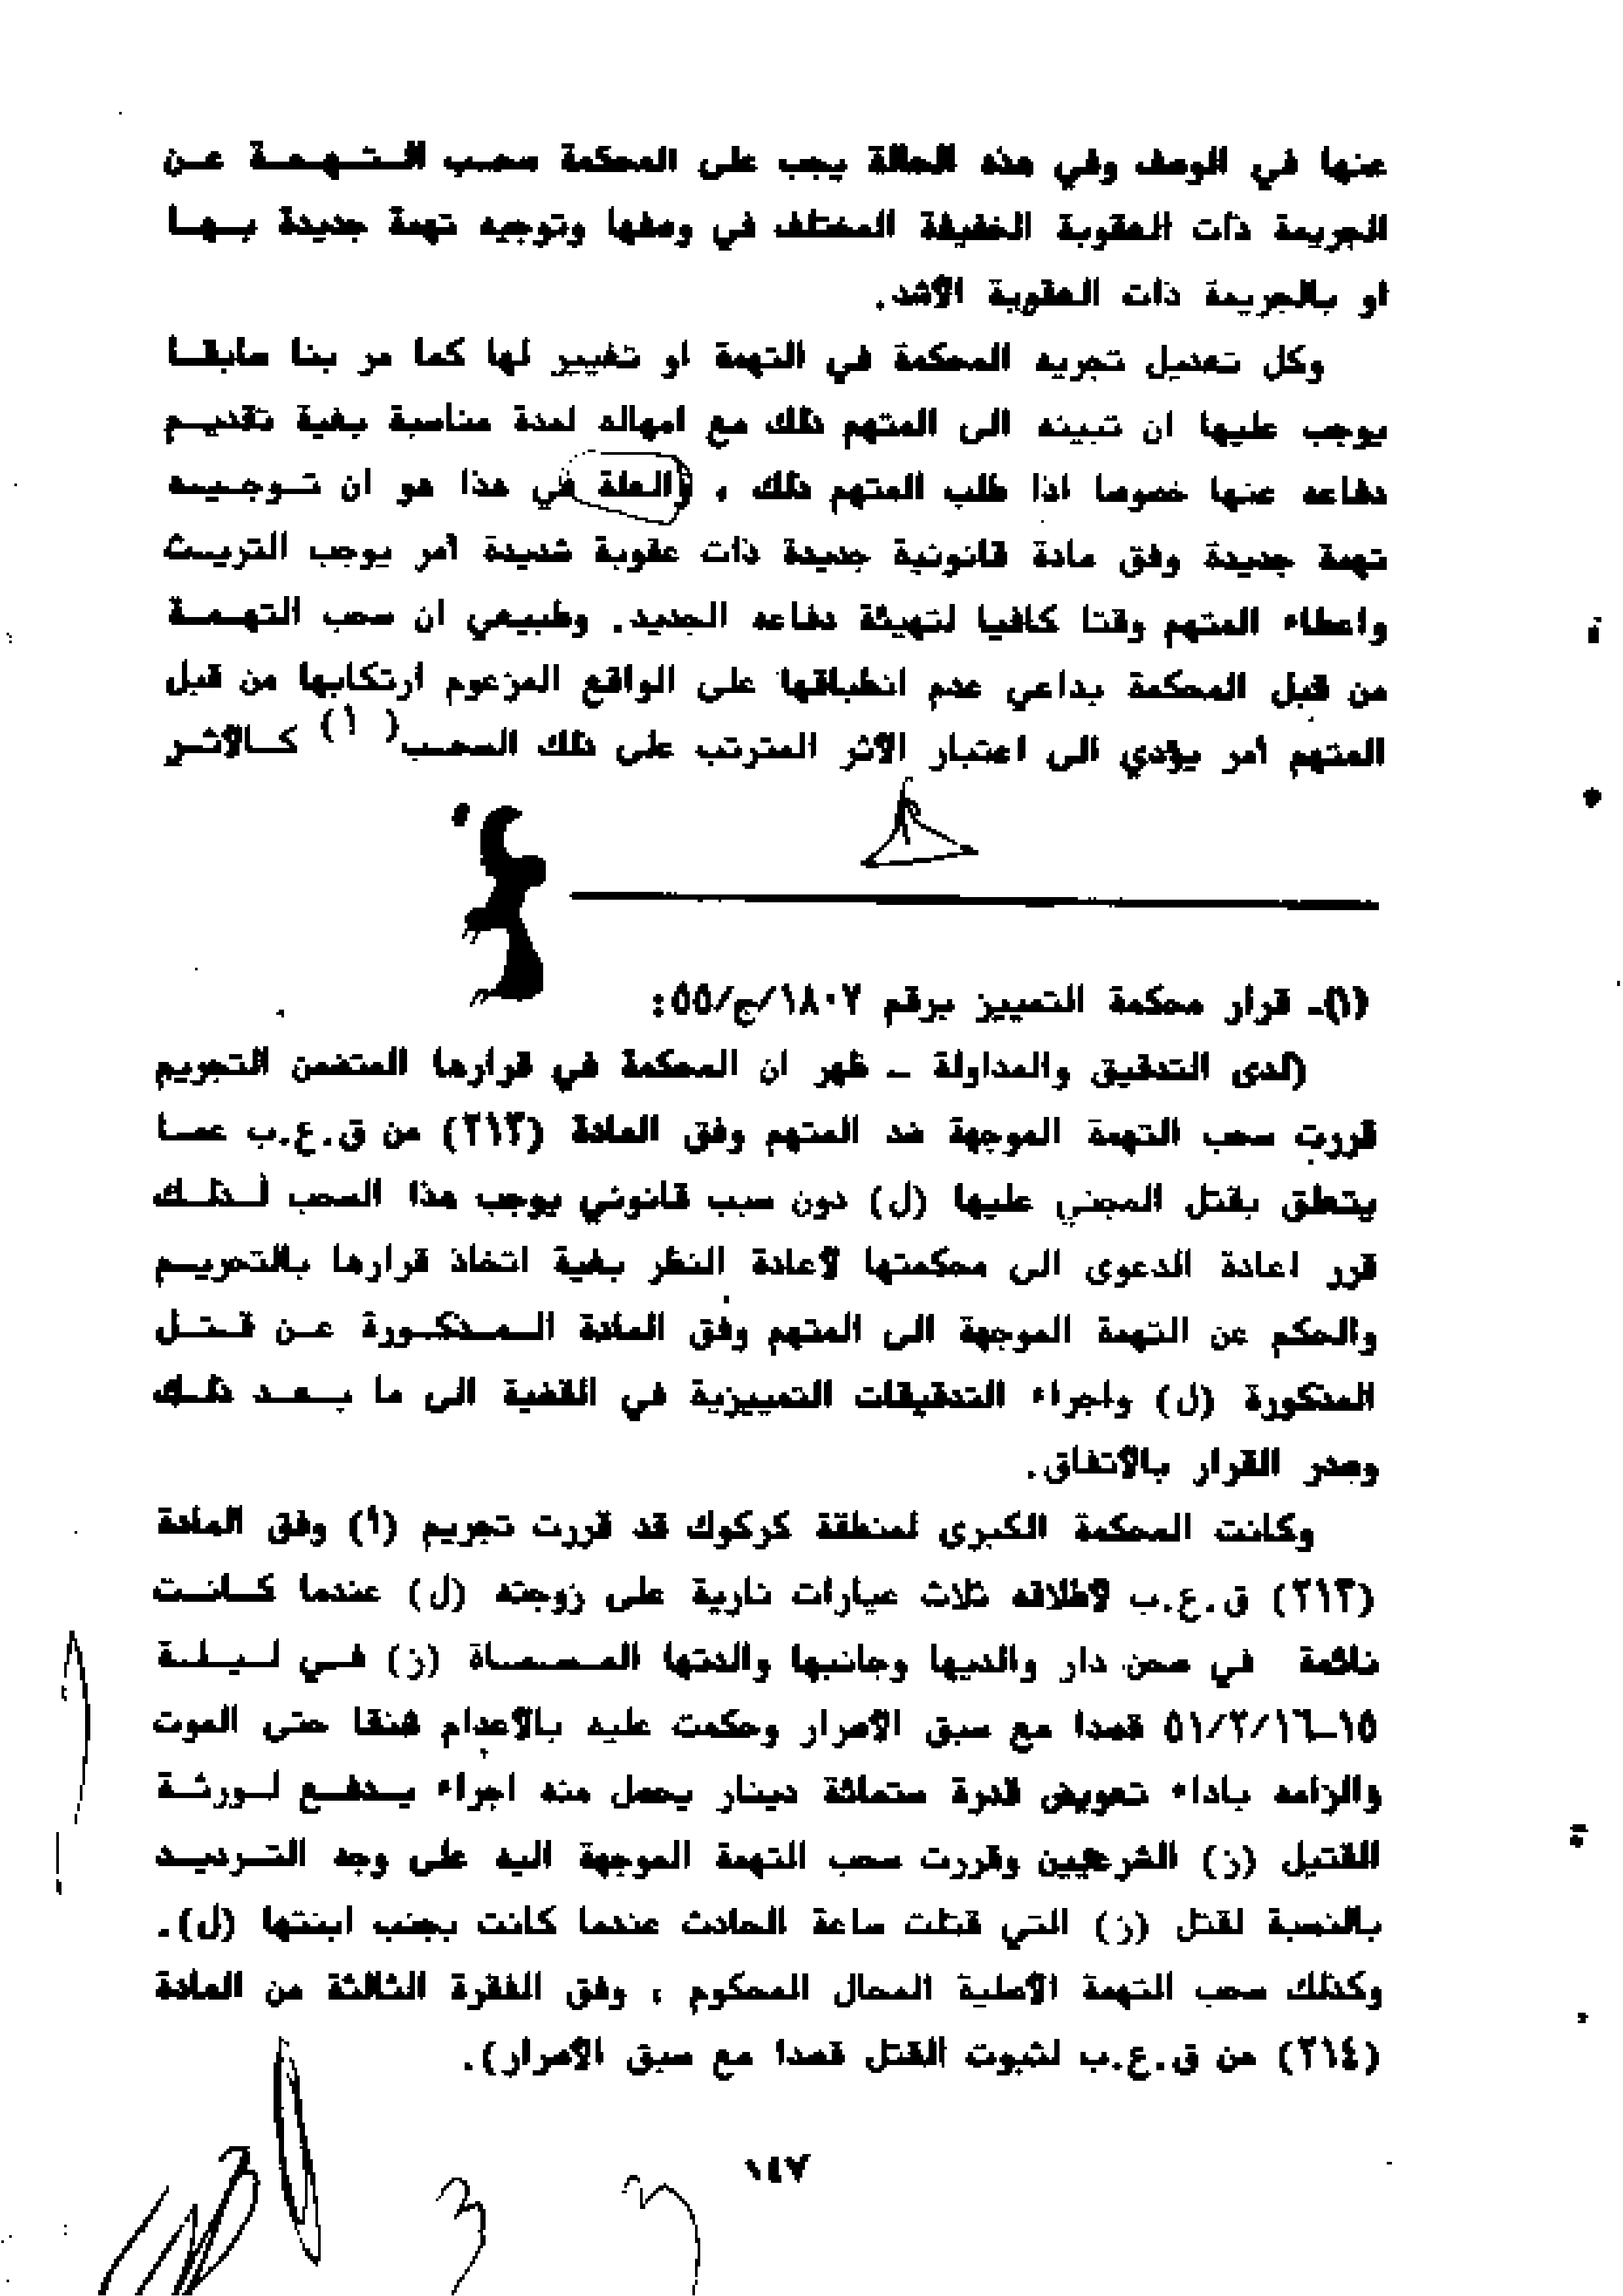 عنها في الوصف وفي هذه الحالة يجب على المحكمة سحب الـتـهـمـة عـن
الجريمة ذات العقوبة الخفيفة المختلف في وصفها وتوجيه تهمة جديدة بـهـا
او بالجريمة ذات العقوبة الأشد.
وكل تعديل تجريه المحكمة في التهمة او تغيير لها كما مر بنا سابقـا
يوجب عليها ان تبينه الى المتهم ذلك مع امهاله لمدة مناسبة بغية تقديـم
دفاعه عنها خصوصا اذا طلب المتهم ذلك ، والعلة في هذا هو ان تـوجـيـه
تهمة جديدة وفق مادة قانونية جديدة ذات عقوبة شديدة أمر يوجب التريـث
واعطاء المتهم وقتا كافيا لتهيئة دفاعه الجديد. وطبيعي ان سحب التهـمـة
من قبل المحكمة بداعي عدم انطباقها على الواقع المزعوم ارتكابها من قبل
المتهم أمر يؤدي الى اعتبار الأثر المترتب على ذلك السحـب(١) كـالأثـر
(١)ـ قرار محكمة التمييز برقم ١٨٠٧/ج/٥٥:
(لدى التدقيق والمداولة ـ ظهر ان المحكمة في قرارها المتضمن التجريم
قررت سحب التهمة الموجهة ضد المتهم وفق المادة (٢١٣) من ق.ع.ب عمـا
يتعلق بقتل المجني عليها (ل) دون سبب قانوني يوجب هذا السحب لـذلـك
قرر اعادة الدعوى الى محكمتها لأعادة النظر بغية اتخاذ قرارها بالتجريـم
والحكم عن التهمة الموجهة الى المتهم وفق المادة الـمـذكـورة عـن قـتـل
المذكورة (ل) واجراء التدقيقات التمييزية في القضية الى ما بـعـد ذلـك
وصدر القرار بالأتفاق.
وكانت المحكمة الكبرى لمنطقة كركوك قد قررت تجريم (أ) وفق المادة
(٢١٣) ق.ع.ب لأطلاقه ثلاث عيارات نارية على زوجته (ل) عندما كـانـت
نائمة في صحن دار والديها وجانبها والدتها المـسـمـاة (ز) فـي لـيـلـة
١٥ـ١٦/٢/٥١ قصدا مع سبق الأصرار وحكمت عليه بالأعدام شنقا حتى الموت
والزامه باداء تعويض قدرة ستمائة دينار يحصل منه اجراء يـدفـع لـورثـة
القتيل (ز) الشرعيين وقررت سحب التهمة الموجهة اليه على وجه التـرديـد
بالنسبة لقتل (ز) التي قتلت ساعة الحادث عندما كانت بجنب ابنتها (ل).
وكذلك سحب التهمة الأصلية المحال المحكوم ، وفق الفقرة الثالثة من المادة
(٢١٤) من ق.ع.ب لثبوت القتل قصدا مع سبق الأصرار).
١٤٧